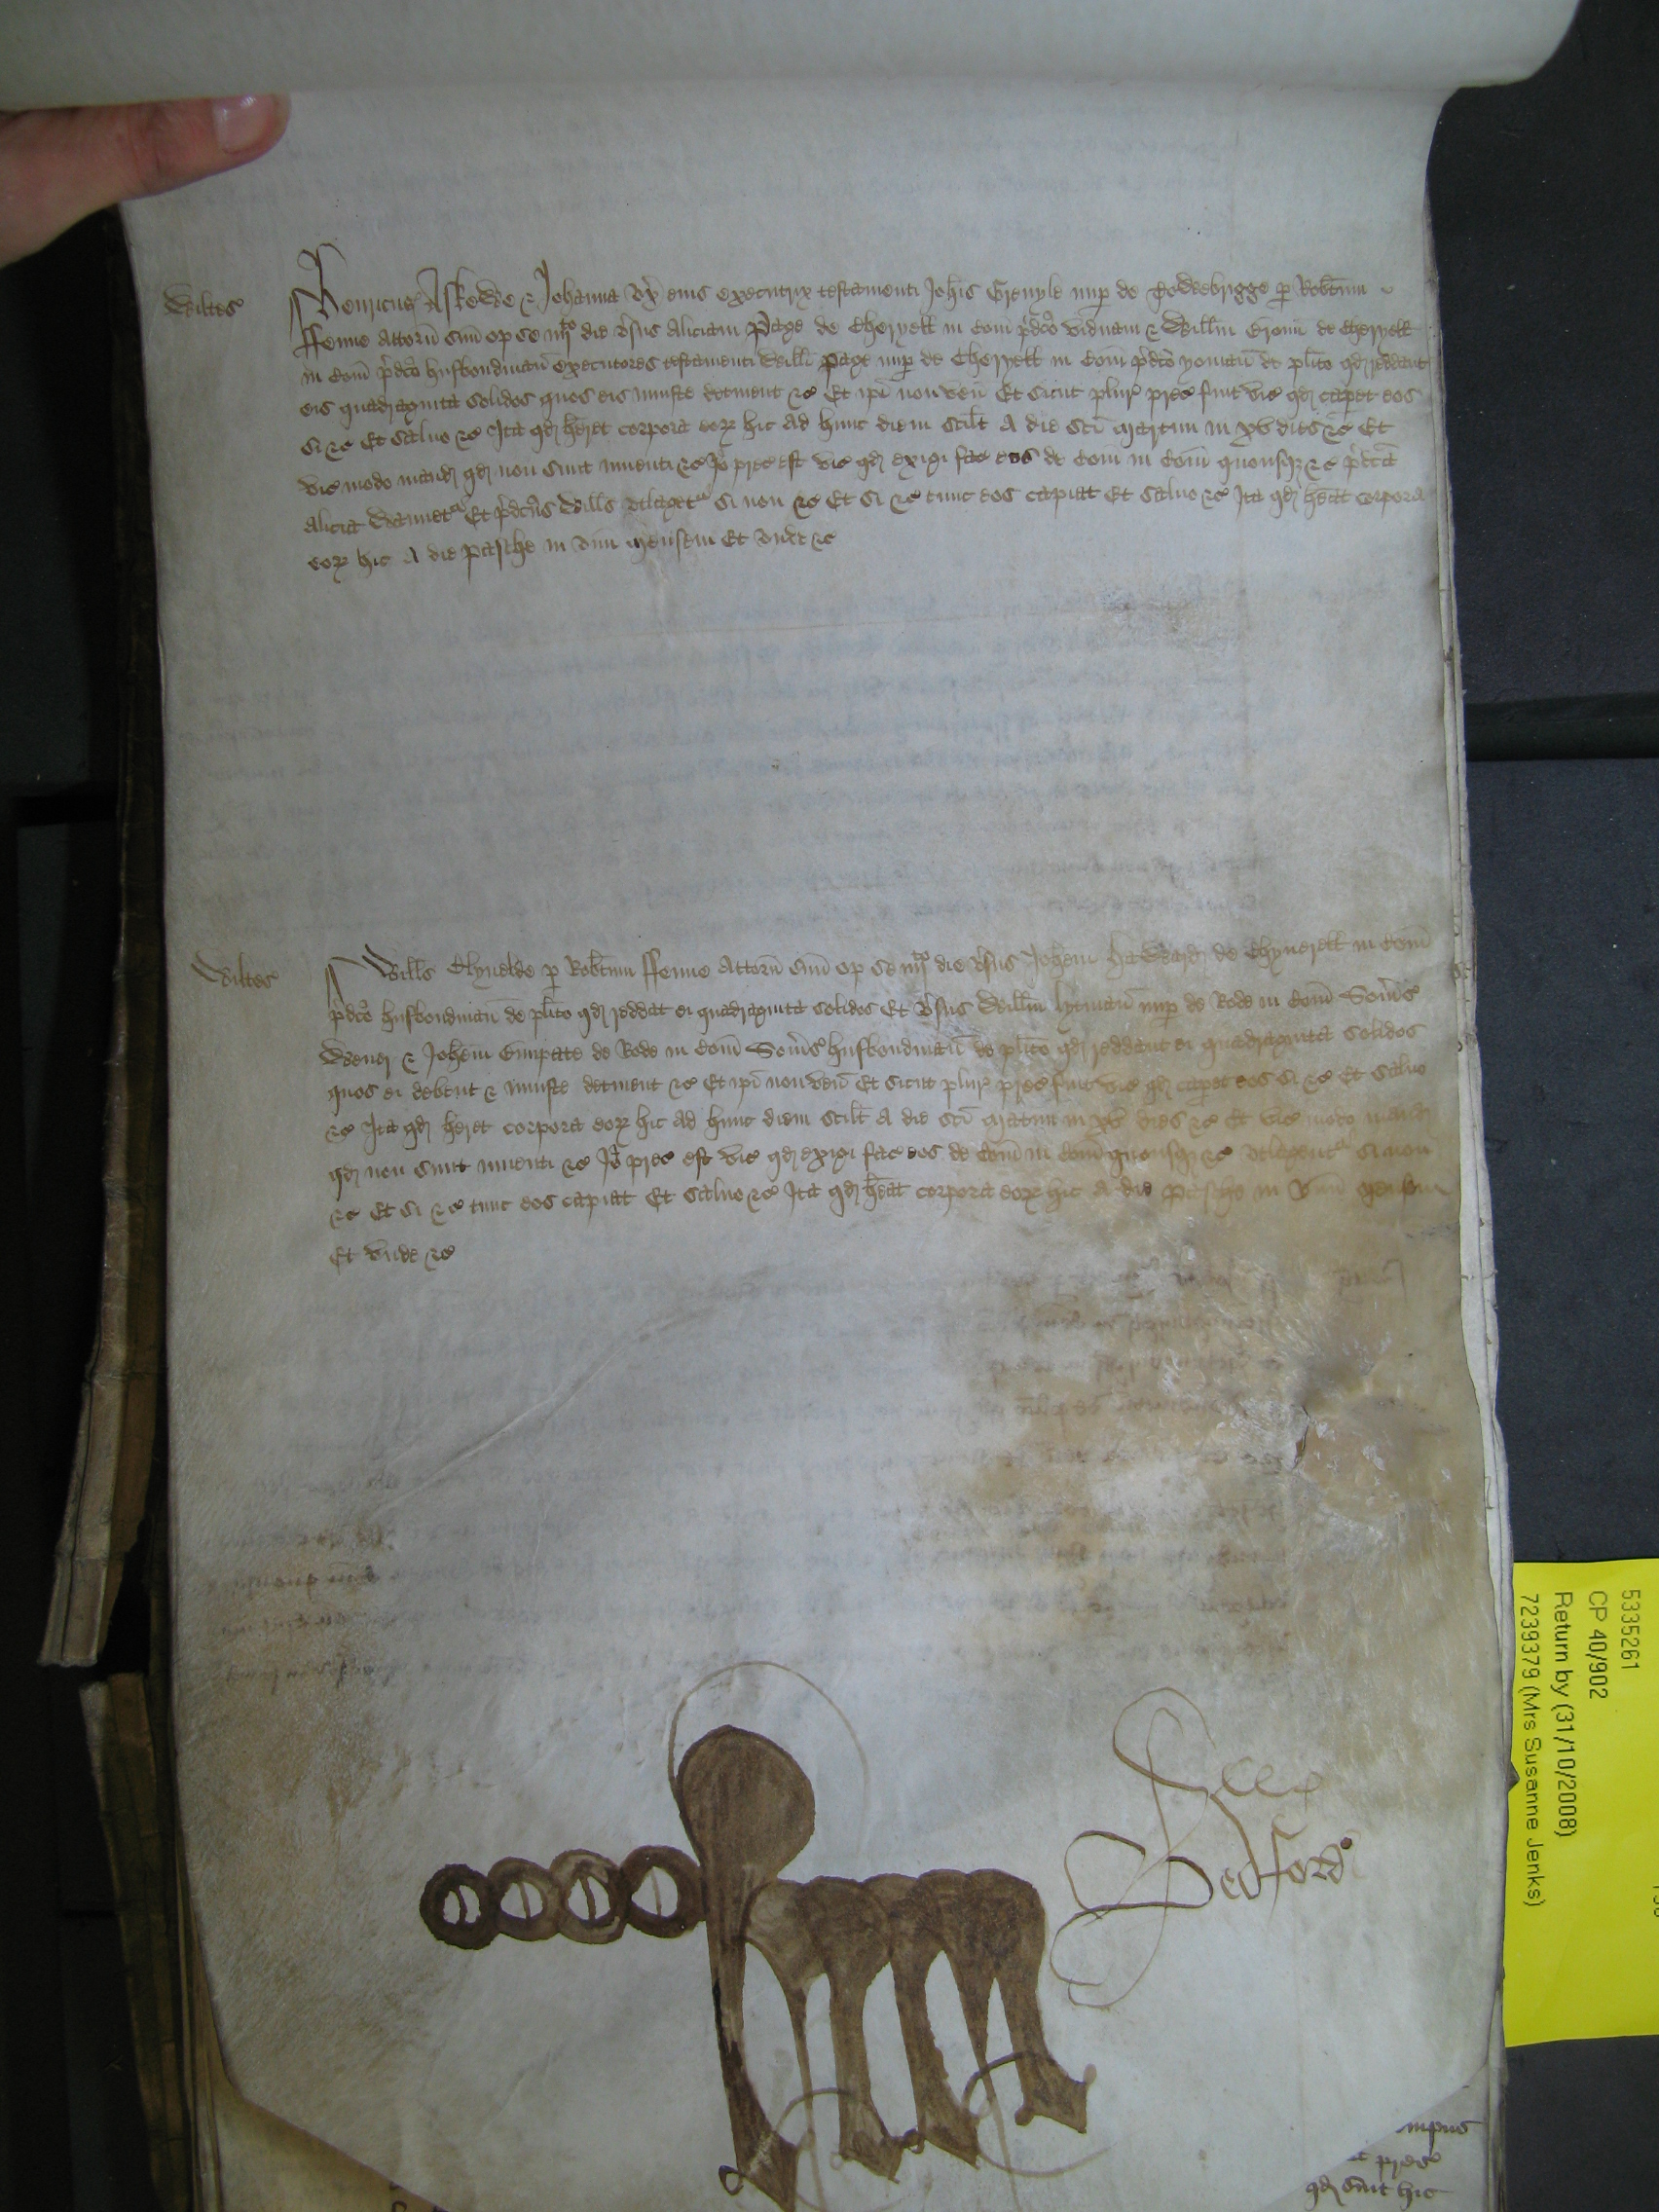 Wiltes
Henricus Askewe & Johanna vx̄ eius executrix testamenti Joħis Grenyle nup̱ de p̱ Rob̄tum
ffenne Attorn̄ suū op se iiijto die v̓sus Aliciam Page de Cheryell in Com̄ p̓dc̄o viduam & Willm̄ de Cheryell
in Com̄ p̓dc̄o husbondman̄ executores testamenti Willi Page nup̱ de Cheryell in Com̄ p̓dc̄o yoman̄ de pl̄ito qd̛ reddant
eis quadraginta solidos quos eis iniuste detinent &c Et ip̄i non ven̄ Et sicut plur̛ prec̛ fuit vic̛ qd̛ caperet eos
si &c Et saluo &c Ita qd̛ her̄et corpora eoꝝ hic ad hunc diem scilt̄ A die sc̄i Martini in xv dies &c Et
vic̛ modo mand̛ qd̛ non sunt inuenti &c Jō prec̛ est vic̛ qd̛ exigi fac̛ eos de Com̄ in Com̄ quousq̛ &c p̓dc̄a
Alicia Wauiet̛ Et p̓dc̄us Wills vtlaget̛ si non &c Et si &c tunc eos capiat Et saluo &c Ita qd̛ hēat corpora
eoꝝ hic A die Pasche in vnū Mensem Et vnde &c
Wiltes
Wills Chynelde p̱ Rob̄tum ffenne Attorn̄ suū op se iiijto die v̓sus Joħem Haward̛ de Chyuerell in Com̄
p̓dc̄o husbondman̄ de pl̄ito qd̛ reddat ei quadraginta solidos Et v̓sus Willm̄ lyman̄ nup̱ de Rode in Com̄ Som̓s̛
Weuer̛ & Joħem de Rode in Com̄ Som̓s̛ husbondman̄ de pl̄ito qd̛ reddant ei quadraginta solidos
quos ei debent & iniuste detinent &c Et ip̄i non ven̄ Et sicut plur̛ prec̛ fuit vic̛ qd̛ caperet eos si &c Et saluo
&c Ita qd̛ her̄et corpora eoꝝ hic ad hunc diem scilt̄ A die sc̄i Martini in xv dies &c Et vic̛ modo mand̛
qd̛ non sunt inuenti &c Jō prec̛ est vic̛ qd̛ exigi fac̛ eos de Com̄ in Com̄ quousq̛ &c vtlagent̛ si non
&c Et si &c tunc eos capiat Et saluo &c Ita qd̛ hēat corpora eoꝝ hic A die Pasche in vnū Mensem
Et vnde &c
Bedford
5335261
CP 40/902
Return by (31/10/2008)
7239379 (Mrs Susanne Jenks)
prec̛
qd̛ sint hic